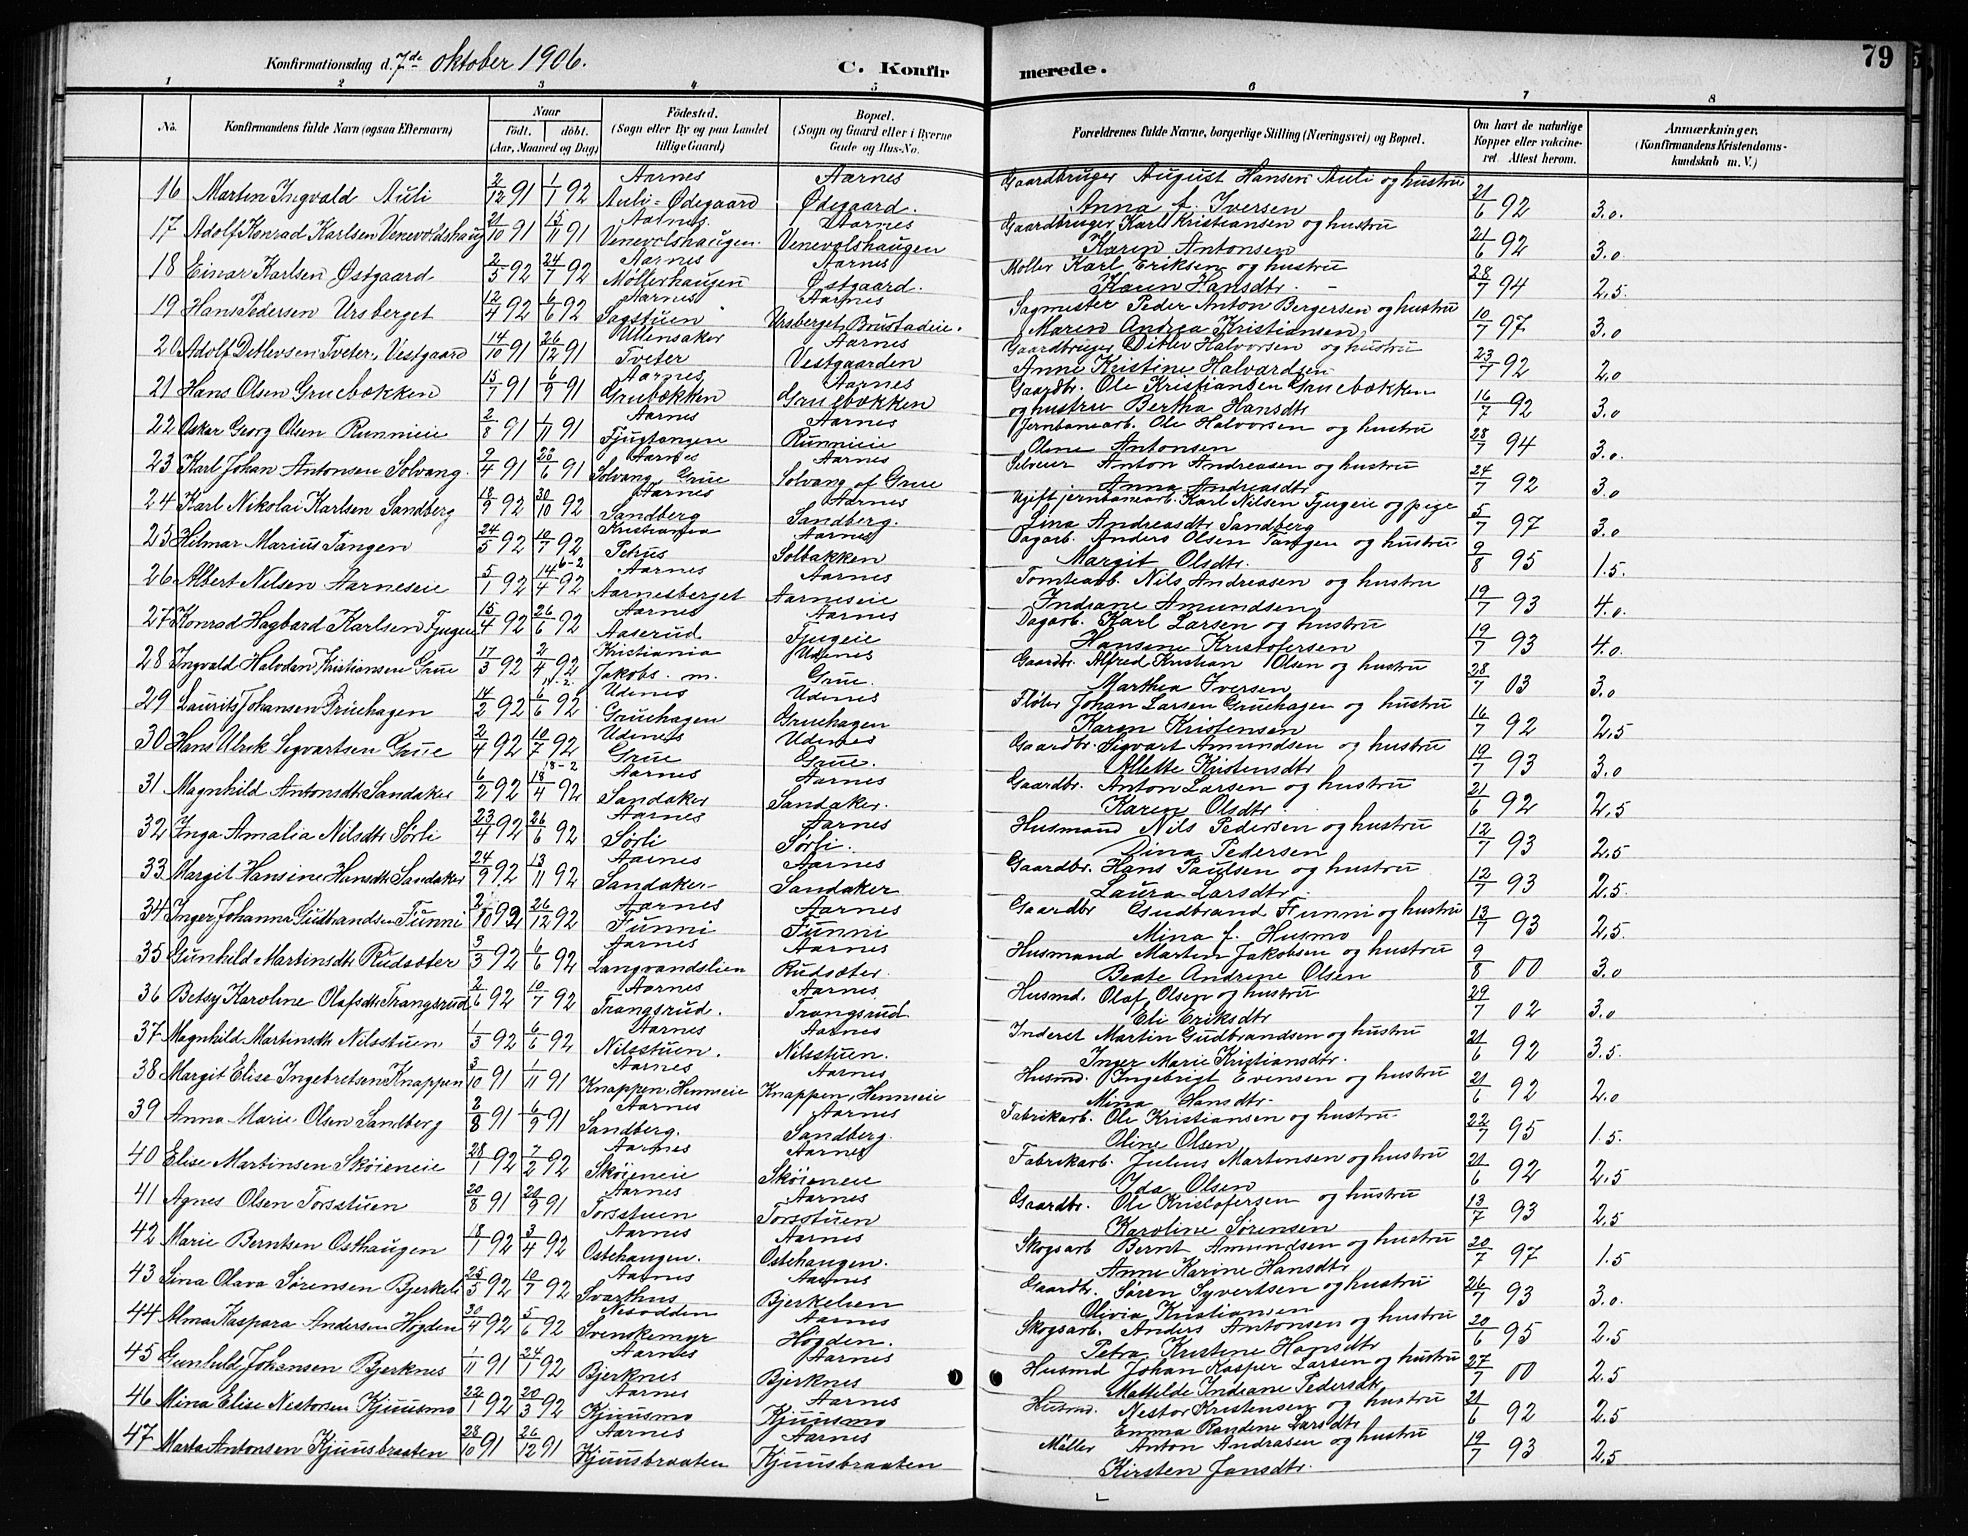 Konfirmationsdag d. 7de oktober 1906.
C. Konfir
merede.
79
1 2 3 4 5 6 7 8
No. Konfirmandens fulde Navn (ogsaa Efternavn) Naar født. døbt. (Aar, Maaned og Dag) Fødested. (Sogn eller By og paa Landet tillige Gaard) Bopæl. (Sogn og Gaard eller i Byerne Gade og Hus-No. Forældrenes fulde Navne, borgerlige Stilling (Næringsvei) og Bopæl. Om havt de naturlige Kopper eller vakcineret. Attest herom. Anmærkninger. (Konfirmandens Kristendomskundskab m. V.)
16 Marten Ingvald Auli 2/12 91 1/1 92 Aarnes Auli-Ødegaard Aarnes Ødegaard. Gaardbruger August Hansen Auli og hustru Anna f. Iversen 21/6 92 3.0.
17 Adolf Konrad Karlsen Venevoldshaug 21/10 91 15/11 91 Aarnes Venevolshaugen. Aarnes Venevolshaugen Gaardbruger Karl Kristiansen og hustru Karen Antonsen 21/6 92 3.0
18 Einar Karlsen Østgaard 2/5 92 24/7 92 Aarnes Møllerhaugen Aarnes Østgaard. Møller Karl Eriksen og hustru Karen Hansdtr. 28/7 94 2,5.
19 Hans Pedersen Ursberget 12/4 92 6/6 92 Aarnes Sagstuen Aarnes Ursberget, Brustadeie. Sagmester Peder Anton Bergersen og hustru Maren Andrea Kristiansen, 10/7 97 3.0
20 Adolf Detlevsen Tveter, Vestgaard 14/10 91 26/12 91 Ullensaker Tveter Aarnes Vestgaarden Gaardbruger Ditlev Halvorsen og hustru Anne Kristine Halvardsen 23/7 92 2.0
21 Hans Olsen Gruebækken 15/7 91 6/9 91 Aarnes Grubækken Aarnes Gruebækken Gaardbr. Ole Kristiansen Gruebækken og hustru Bertha Hansdtr 16/7 92 3.0
22 Oskar Georg Olsen Runnieie 2/8 91 1/11 91 Aarnes Fjugtangen Aarnes Runnieie Jernbanearb. Ole Halvorsen og hustru Oline Antonsen 28/7 94 3.0.
23 Karl Johan Antonsen Solvang. 9/4 91 28/6 91 Aarnes Solvang, Grue Aarnes Solvang af Grue Selveier Anton Andreasen og hustru Anna Andreasdtr 24/7 92 3.0
24 Karl Nikolai Karlsen Sandberg 18/9 92 30/10 92 Aarnes Sandberg Aarnes Sandberg. Ugift jernbanearb. Karl Nilsen Fjugeie og pige Lina Andreasdtr Sandberg 5/7 97 3.0
25 Hilmar Marius Tangen 24/5 92 10/7 92 Kristiania Petrus Aarnes Solbakken Dagarb. Anders Olsen Tangen og hustru Margit Olsdtr. 9/8 95 1.5.
26 Albert Nilsen Aarneseie 5/1 92 6-2 14/4 92 Aarnes Aarnesberget Aarnes Aarneseie Tomtearb. Nils Andreasen og hustru Indiane Amundsen 19/7 93 4.0
27 Konrad Hagbard Karlsen Fjugeie 15/4 92 26/6 92 Aarnes Aaserud Aarnes Fjugeie Dagarb. Karl Larsen og hustru Hansine Kristofersen 19/7 93 4.0
28 Ingvald Halvdan Kristiansen Grue 17/3 92 2/4 92 Kristiania Jakobs. m. Udenes Grue. Gaardbr. Alfred Kristian Olsen og hustru Marthea Iversen 28/7 03 3.0
29 Laurits Johansen Gruehagen 14/2 92 6/6 92 Udenes Gruehagen Udenes Gruehagen Fløter Johan Larsen Gruehagen og hustru Karen Kristensen 16/7 92 2,5
30 Hans Ulrik Sigvartsen Grue 2/4 92 10/7 92 Udenes Grue Udenes Grue. Gaardbr. Sigvart Amundsen og hustru Allette Kristensdtr 19/7 93 3.0
31 Magnhild Antonsdtr Sandaker 6/2 92 18-2 18/4 92 Aarnes Sandaker Aarnes Sandaker. Gaardbr. Anton Larsen og hustru Karen Olsdtr. 21/6 92 2,5
32 Inga Amalia Nilsdtr Sørli 23/4 92 26/6 92 Aarnes Sørli Aarnes Sørli. Husmand Nils Pedersen og hustru Dina Pedersen 12/7 93 2.5
33 Margit Hansine Hansdtr Sandaker 24/9 92 13/11 92 Aarnes Sandaker Aarnes Sandaker Gaardbr. Hans Paulsen og hustru Laura Larsdtr 12/7 93 2.5.
34 Inger Johanna Gudbrandsen Funni 2/10 92 26/12 92 Aarnes Funni Aarnes Funni Gaardbr Gudbrand Funni og hustru Mina f. Husmo 13/7 93 2,5.
35 Gunhild Martinsdtr Rudsæter 3/3 92 6/6 92 Aarnes Langvandslien Aarnes Rudsæter. Husmand Marten Jakobsen og hustru Beate Andrine Olsen 9/8 00 3.0
36 Betsy Karoline Olafsdtr Trangsrud 2/6 92 10/7 92 Aarnes Trangsrud. Aarnes Trangsrud Husmd. Olaf Olsen og hustru Eli Eriksdtr 29/7 02 3.0
37 Magnhild Martinsdtr Nilsstuen 1/3 92 6/6 92 Aarnes Nilsstuen. Aarnes Nilsstuen. Inderst Martin Gudbrandsen og hustru Inger Marie Kristiansdtr. 21/6 92 3.5.
38 Margit Elise Ingebretsen Knappen 3/10 91 1/11 91 Aarnes Knappen, Henneeie Aarnes Knappen, Henneeie Husmd. Ingebrigt Evensen og hustru Mina Hansdtr. 21/6 92 2.0
39 Anna Marie Olsen Sandberg 2/8 91 6/9 91 Aarnes Sandberg. Aarnes Sandberg. Fabrikarb. Ole Kristiansen og hustru Oline Olsen 22/7 95 1.5.
40 Elise Martinsen Skøieneie 28/1 92 7/2 92 Aarnes Skøieneie Aarnes Skøieneie Fabrikarb. Julius Martinsen og hustru Ida Olsen 21/6 92 2.5
41 Agnes Olsen Torsstuen 20/8 91 20/9 91 Aarnes Torsstuen Aarnes Torsstuen Gaardbr. Ole Kristofersen og hustru Karoline Sørensen 13/7 93 2,5
42 Marie Berntsen Osthaugen 18/1 92 3/4 92 Aarnes Ostehaugen. Aarnes Ostehaugen. Skogsarb Bernt Amundsen og hustru Anne Karine Hansdtr 20/7 97 1.5
43 Lina Olava Sørensen Bjerkeli 25/5 92 10/7 92 Aarnes Svarthus Aarnes Bjerkelien Gaardbr. Søren Syvertsen og hustru Olivia Kristiansen 26/7 93 3.0.
44 Alma Kaspara Andersen Høgden 30/4 92 5/6 92 Nesodden Svenskemyr Aarnes Høgden. Skogsarb. Anders Antonsen og hustru Petra Kristine Hansdtr 20/6 95 2.5
45 Gunhild Johansen Bjerknes 1/11 91 24/1 92 Aarnes Bjerknes Aarnes Bjerknes Husmd Johan Kasper Larsen og hustru Matilde Indiane Pedersdtr 27/7 00 2.5
46 Mina Elise Nestorsen Kjuusmo 22/1 92 20/3 92 Aarnes Kjuusmo Aarnes Kjuusmo Husmd. Nestor Kristensen og hustru Emma Randine Larsdtr 21/6 92 2.5
47 Marta Antonsen Kjuusbraaten 23/10 91 26/12 91 Aarnes Kjuusbraaten Aarnes Kjuusbraaten Møller Anton Andrasen og hustru Kirsten Jansdtr. 19/7 93 2,5